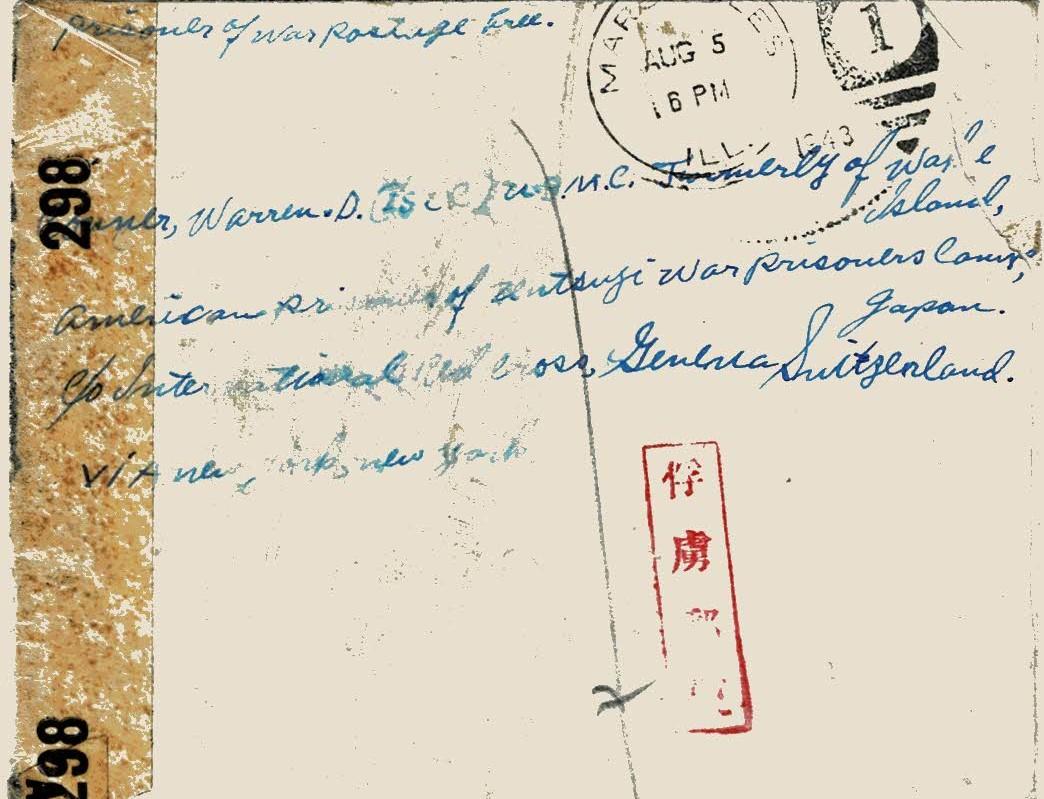 Prisoner of War Postage Free.
AUG 5
6 PM
ILL. 1943
1
Warren. D. U.S.M.C. Formerly of Wake
Island,
American Prisoner of Zentsuji War Prisoners Camp,
Japan.
c/o International Red Cross, Geneva Switzerland.
VIA New York, New York
298
298
俘
虜
郵